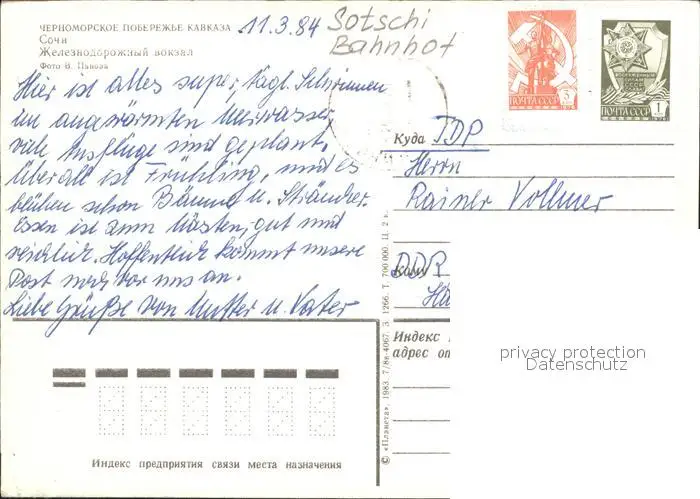 ЧЕРНОМОРСКОЕ ПОБЕРЕЖЬЕ КАВКАЗА
Сочи
Железнодорожный вокзал
Фото В. Панова
11.3.84
Sotschi
Bahnhof
5
ПОЧТА СССР
1
ПОЧТА СССР
Hier ist alles super, tägl. Schwimmen
im angewärmten Meerwasser,
viele Ausflüge sind geplant.
Überall ist Frühling, und es
blühen schon Bäume u. Sträucher.
Essen ist zum Mästen, gut und
reichlich. Hoffentlich kommt unsere
Post noch vor uns an.
Liebe Grüße von Mutter u. Vater
Куда ГДР
Herrn
Rainer Vollmer
Кому
DDR
Ha
Индекс
адрес от
© «Планета», 1983. 7/8в-4067. З. 1266. Т. 700 000. Ц. 2 к.
Индекс предприятия связи места назначения
privacy protection
Datenschutz